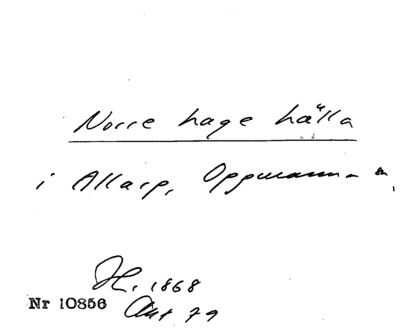 Norre hage hälla
i Allarp, Oppmanna sn,
H. 1868
Nr 10856
Akt 79